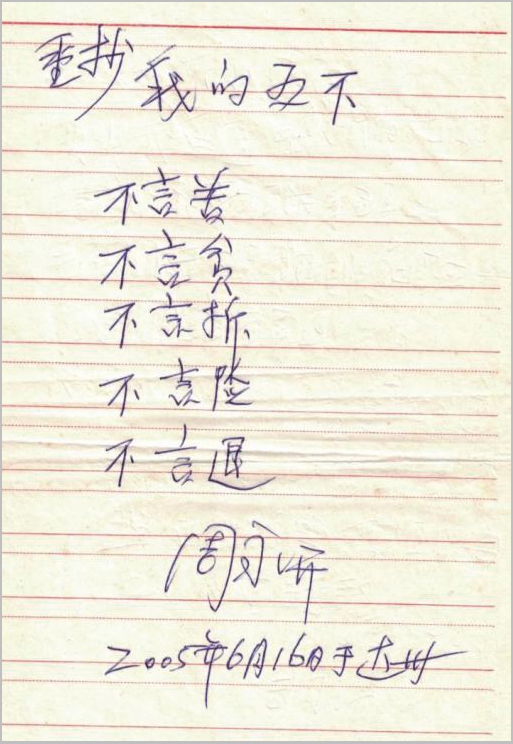 重抄 我的五不
不言苦
不言贫
不言拆
不言险
不言退
周永开
2005年6月16日于达州